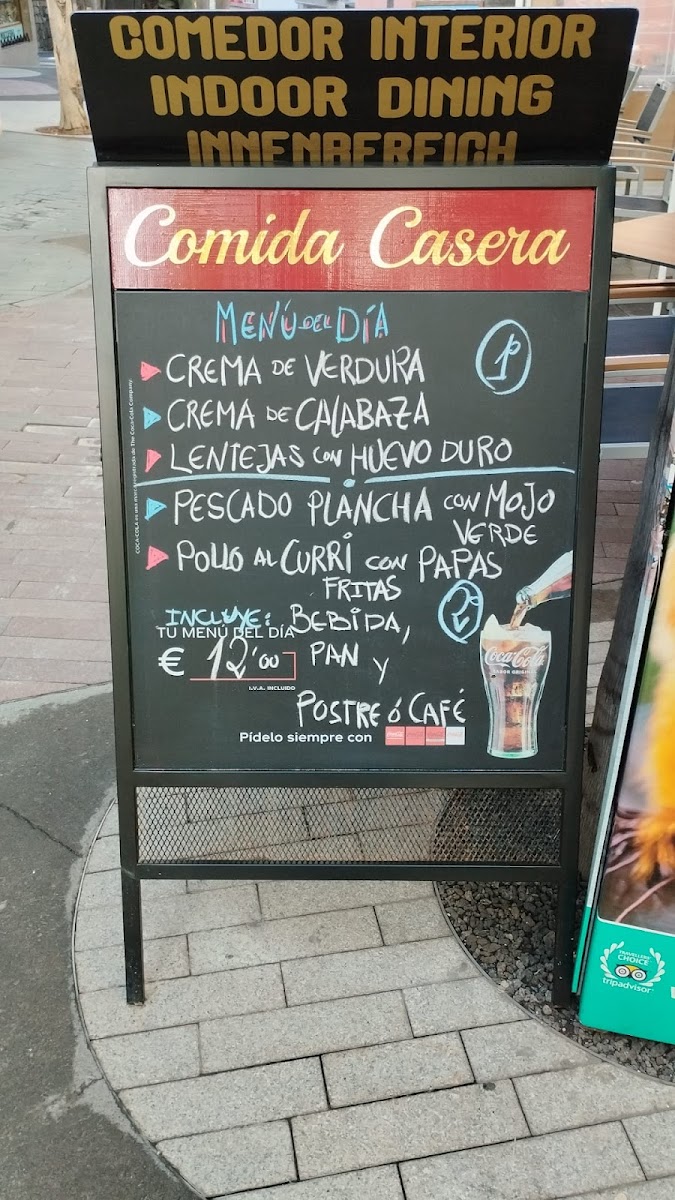 COMEDOR INTERIOR
INDOOR DINING
INNENBEREICH
Comida Casera
MENÚ DEL DÍA
1º
CREMA DE VERDURA
CREMA DE CALABAZA
LENTEJAS CON HUEVO DURO
PESCADO PLANCHA CON MOJO
VERDE
POLLO AL CURRI CON PAPAS
FRITAS
2º
INCLUYE: BEBIDA,
TU MENÚ DEL DÍA
€ 12'00
PAN Y
I.V.A. INCLUIDO
POSTRE ó CAFÉ
Pídelo siempre con
Coca-Cola
SABOR ORIGINAL
COCA-COLA es una marca registrada de The Coca-Cola Company
TRAVELLERS'
CHOICE
tripadvisor